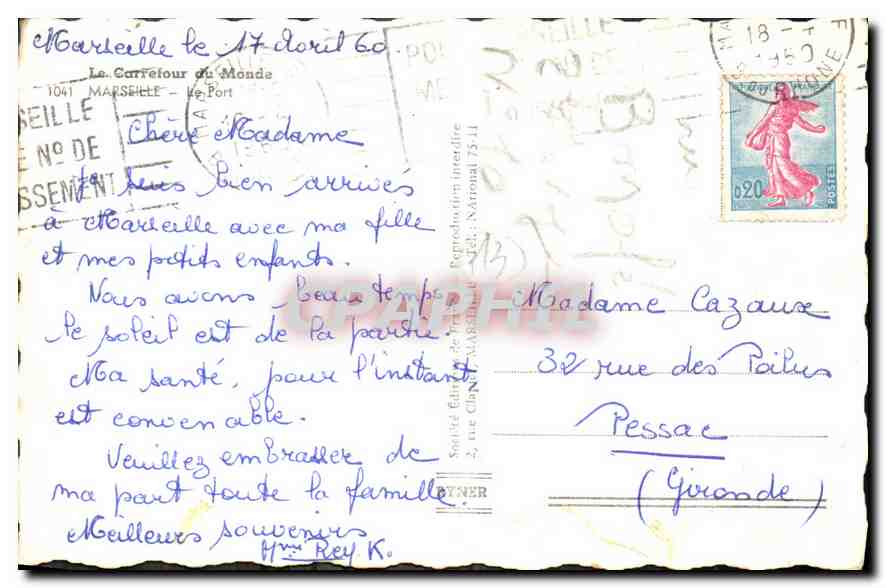 Marseille le 17 Avril 60.
Le Carrefour du Monde
1041 MARSEILLE - Le Port
Chère Madame
Je suis bien arrivés
à Marseille avec ma fille
et mes petits enfants.
Nous avons beau temps,
le soleil est de la partie.
Ma santé, pour l'instant
est convenable.
Veuillez embrasser de
ma part toute la famille.
Meilleurs souvenirs
Mme Rey K.
SEILLE
E No DE
SSEMENT
Reproduction interdite
Tél. : NAtional 75-11
RYNER
(13)
18
1960
RHONE
0,20
POSTES
Madame Cazaux
32 rue des Poilus
Pessac
(Gironde)
CPAPHIL